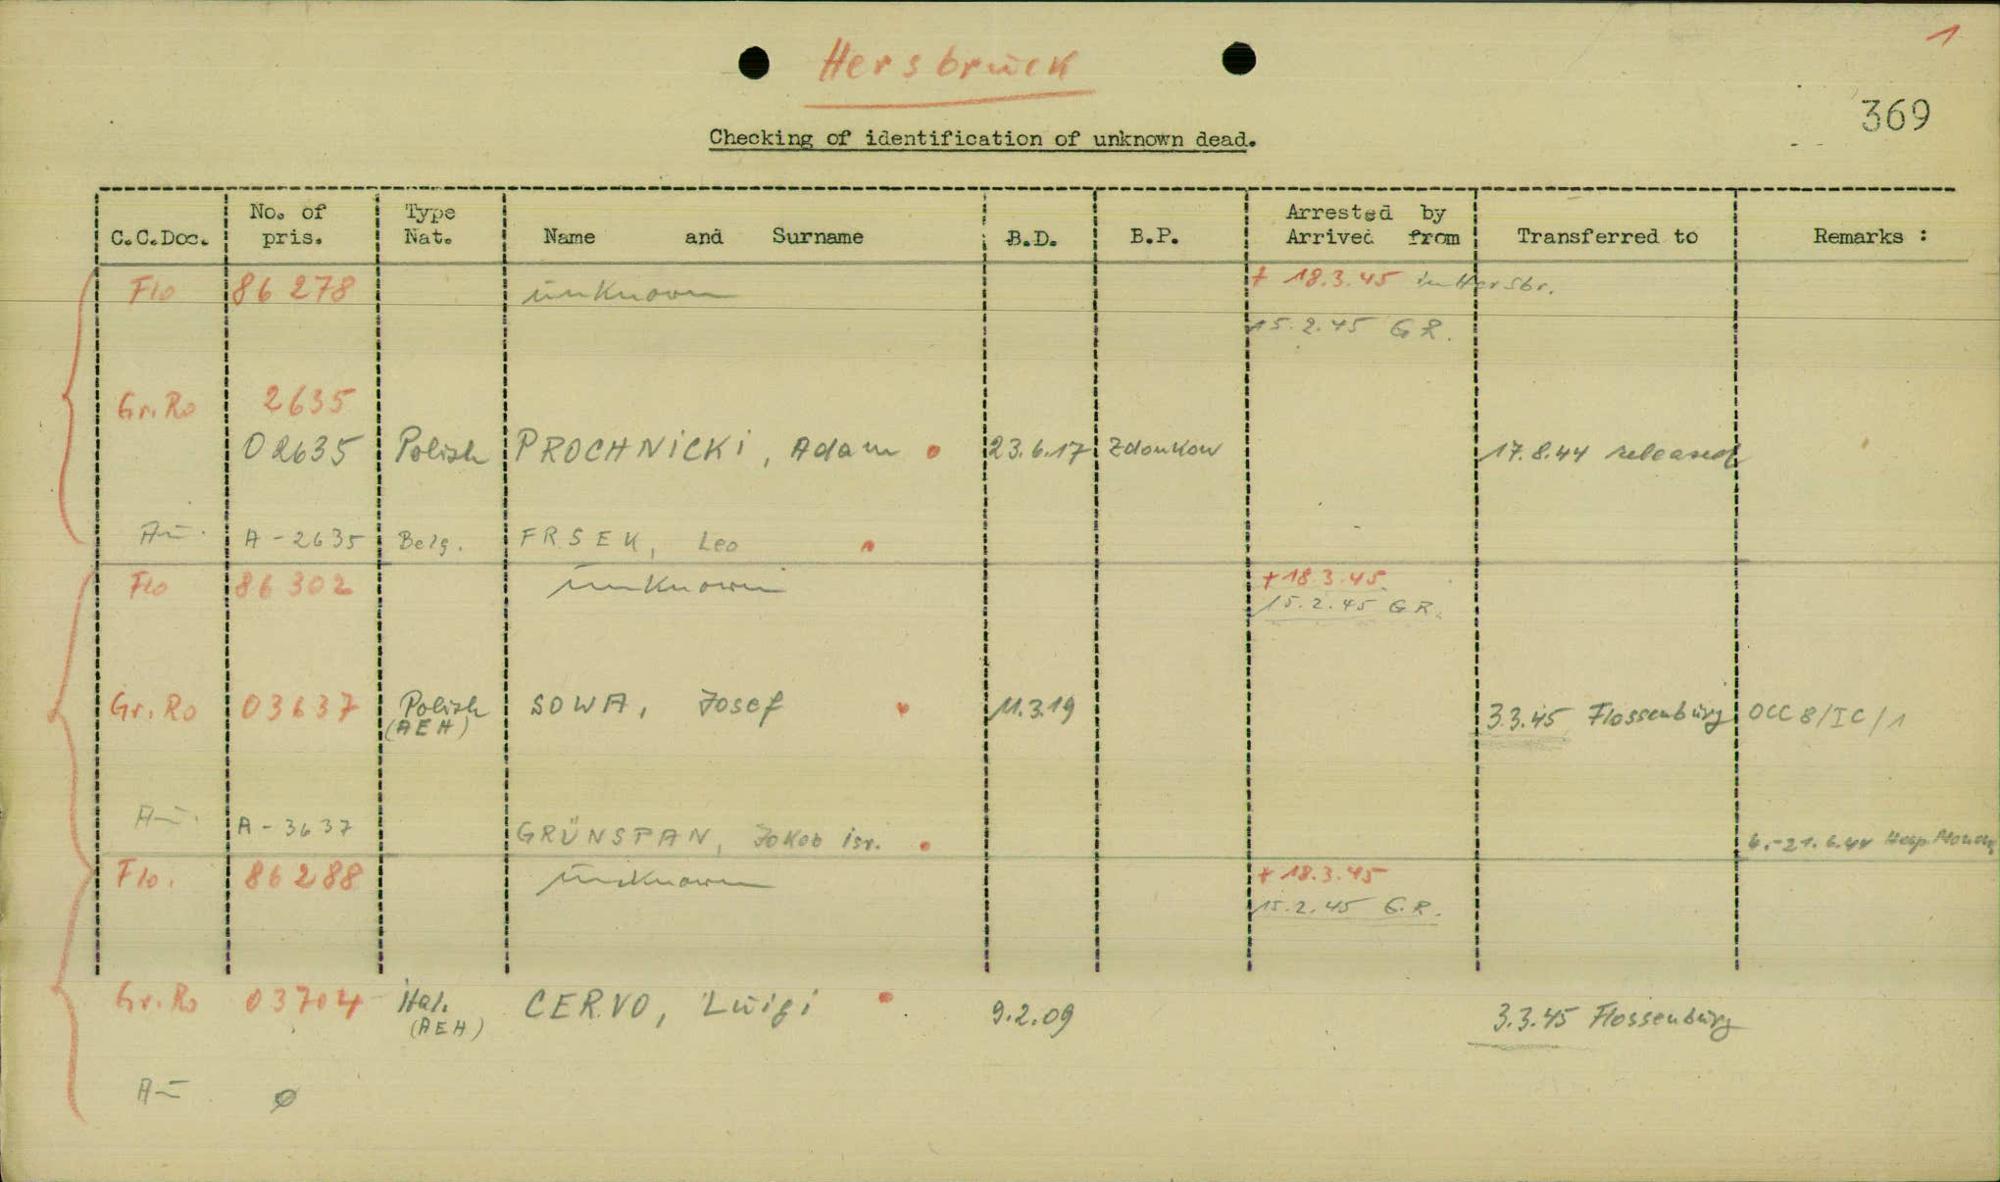 1
Hersbruck
369
Checking of identification of unknown dead.
C.C.Doc. No. of pris. Type Nat. Name and Surname B.D. B.P. Arrested by Arrived from Transferred to Remarks :
Flo 86 278 unknown + 18.3.45 in Hersbr.
15.2.45 G R.
Gr. Ro 2635
02635 Polish PROCHNICKI, Adam 23.6.17 Zdonkow 17.8.44 released
Au. A-2635 Belg. FRSEK, Leo
Flo 86 302 unknown + 18.3.45
15.2.45 G R.
Gr. Ro 03637 Polish SOWA, Josef 11.3.19 3.3.45 Flossenbürg OCC 8/IC/1
(AEH)
Au. A-3637 GRÜNSPAN, Jakob isr. 6.-21.6.44 Hosp.
Flo. 86 288 unknown + 18.3.45
15.2.45 G.R.
Gr. Ro 03704 Ital. CERVO, Luigi 9.2.09 3.3.45 Flossenbürg
(AEH)
Au ø